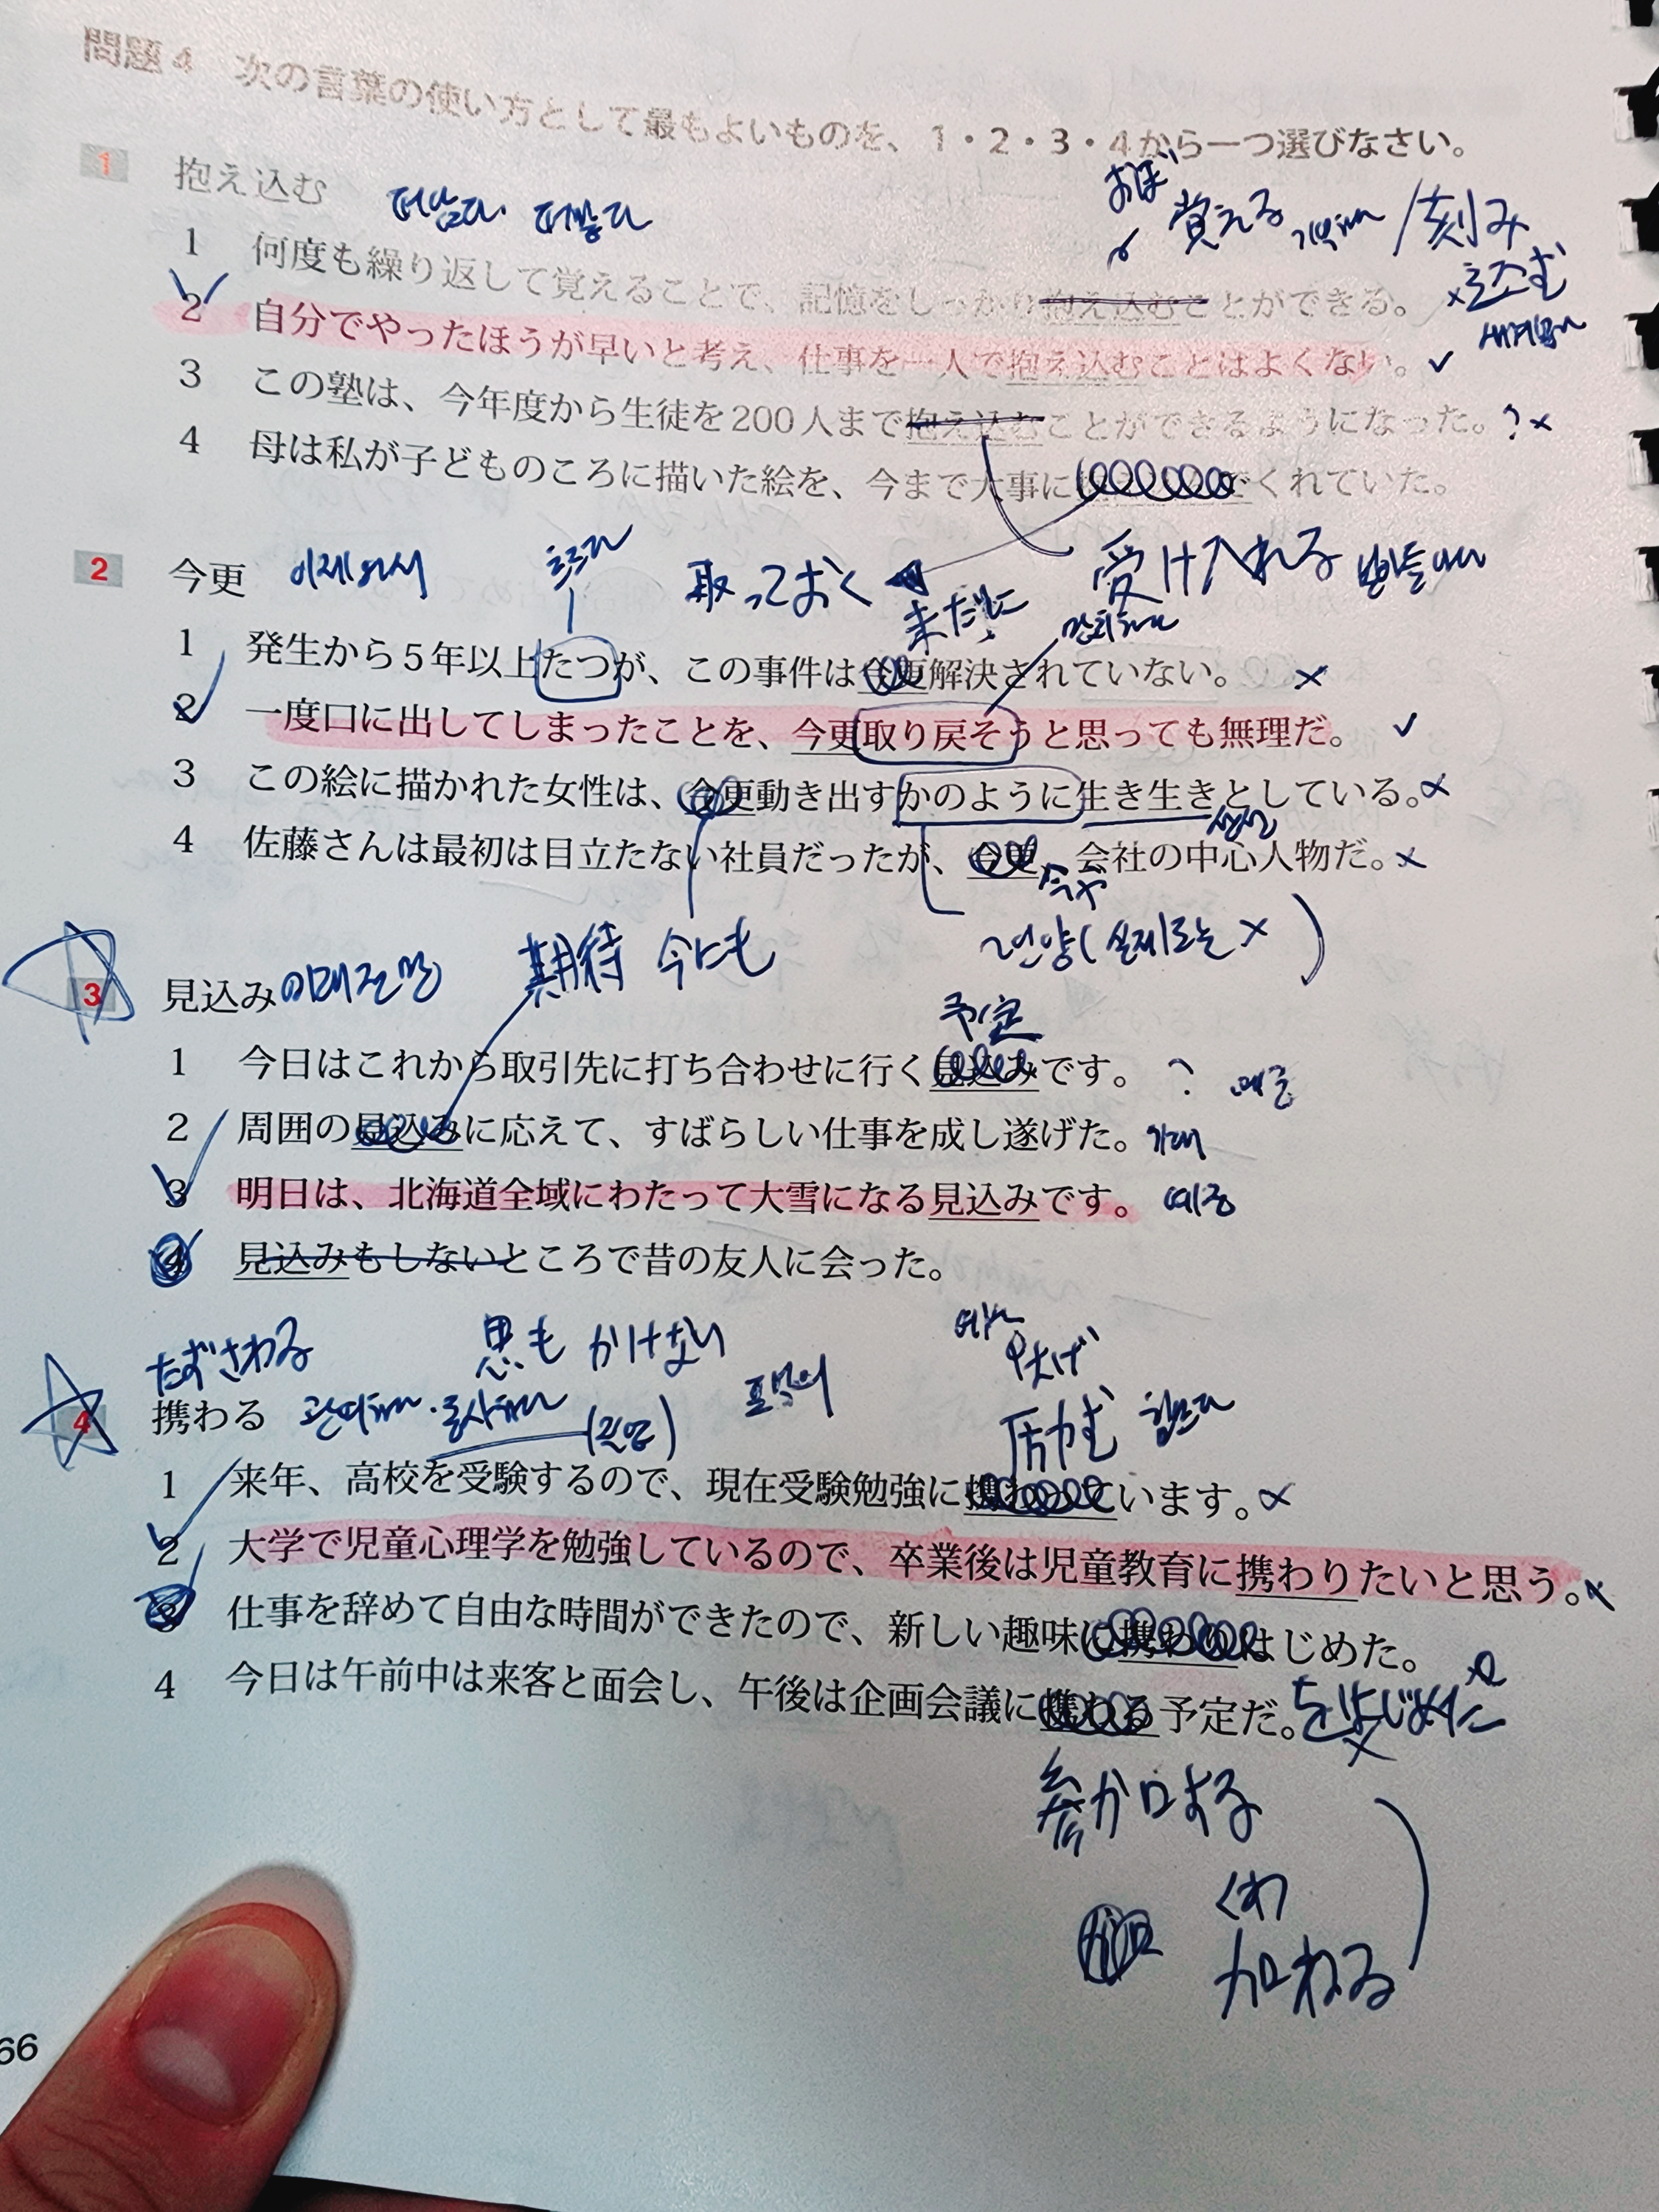 問題4 次の言葉の使い方として最もよいものを、1・2・3・4から一つ選びなさい。
1 抱え込む 떠맡다. 떠안다
おぼ 覚える 기억하다 / 刻み込む
1 何度も繰り返して覚えることで、記憶をしっかり抱え込むことができる。
2 自分でやったほうが早いと考え、仕事を一人で抱え込むことはよくない。
3 この塾は、今年度から生徒を200人まで抱え込むことができるようになった。?
4 母は私が子どものころに描いた絵を、今まで大事に でくれていた。
2 今更 이제와서 흐르다 取っておく 受け入れる 받아들이다
未だに 만회하다
1 発生から5年以上たつが、この事件は今更解決されていない。
2 一度口に出してしまったことを、今更取り戻そうと思っても無理だ。
3 この絵に描かれた女性は、今更動き出すかのように生き生きとしている。
4 佐藤さんは最初は目立たない社員だったが、今更、会社の中心人物だ。
今や
期待 今にも ~인양(실제로는 x)
3 見込み
予定
1 今日はこれから取引先に打ち合わせに行く見込みです。?
2 周囲の見込みに応えて、すばらしい仕事を成し遂げた。 기대
3 明日は、北海道全域にわたって大雪になる見込みです。
4 見込みもしないところで昔の友人に会った。
たずさわる 思もかけない
4 携わる 관여하다・종사하다 (직업)
励む 힘쓰다
1 来年、高校を受験するので、現在受験勉強に携わっています。
2 大学で児童心理学を勉強しているので、卒業後は児童教育に携わりたいと思う。
3 仕事を辞めて自由な時間ができたので、新しい趣味に携わりはじめた。
4 今日は午前中は来客と面会し、午後は企画会議に携わる予定だ。
をはじめた
参加する
くわ
加わる
66